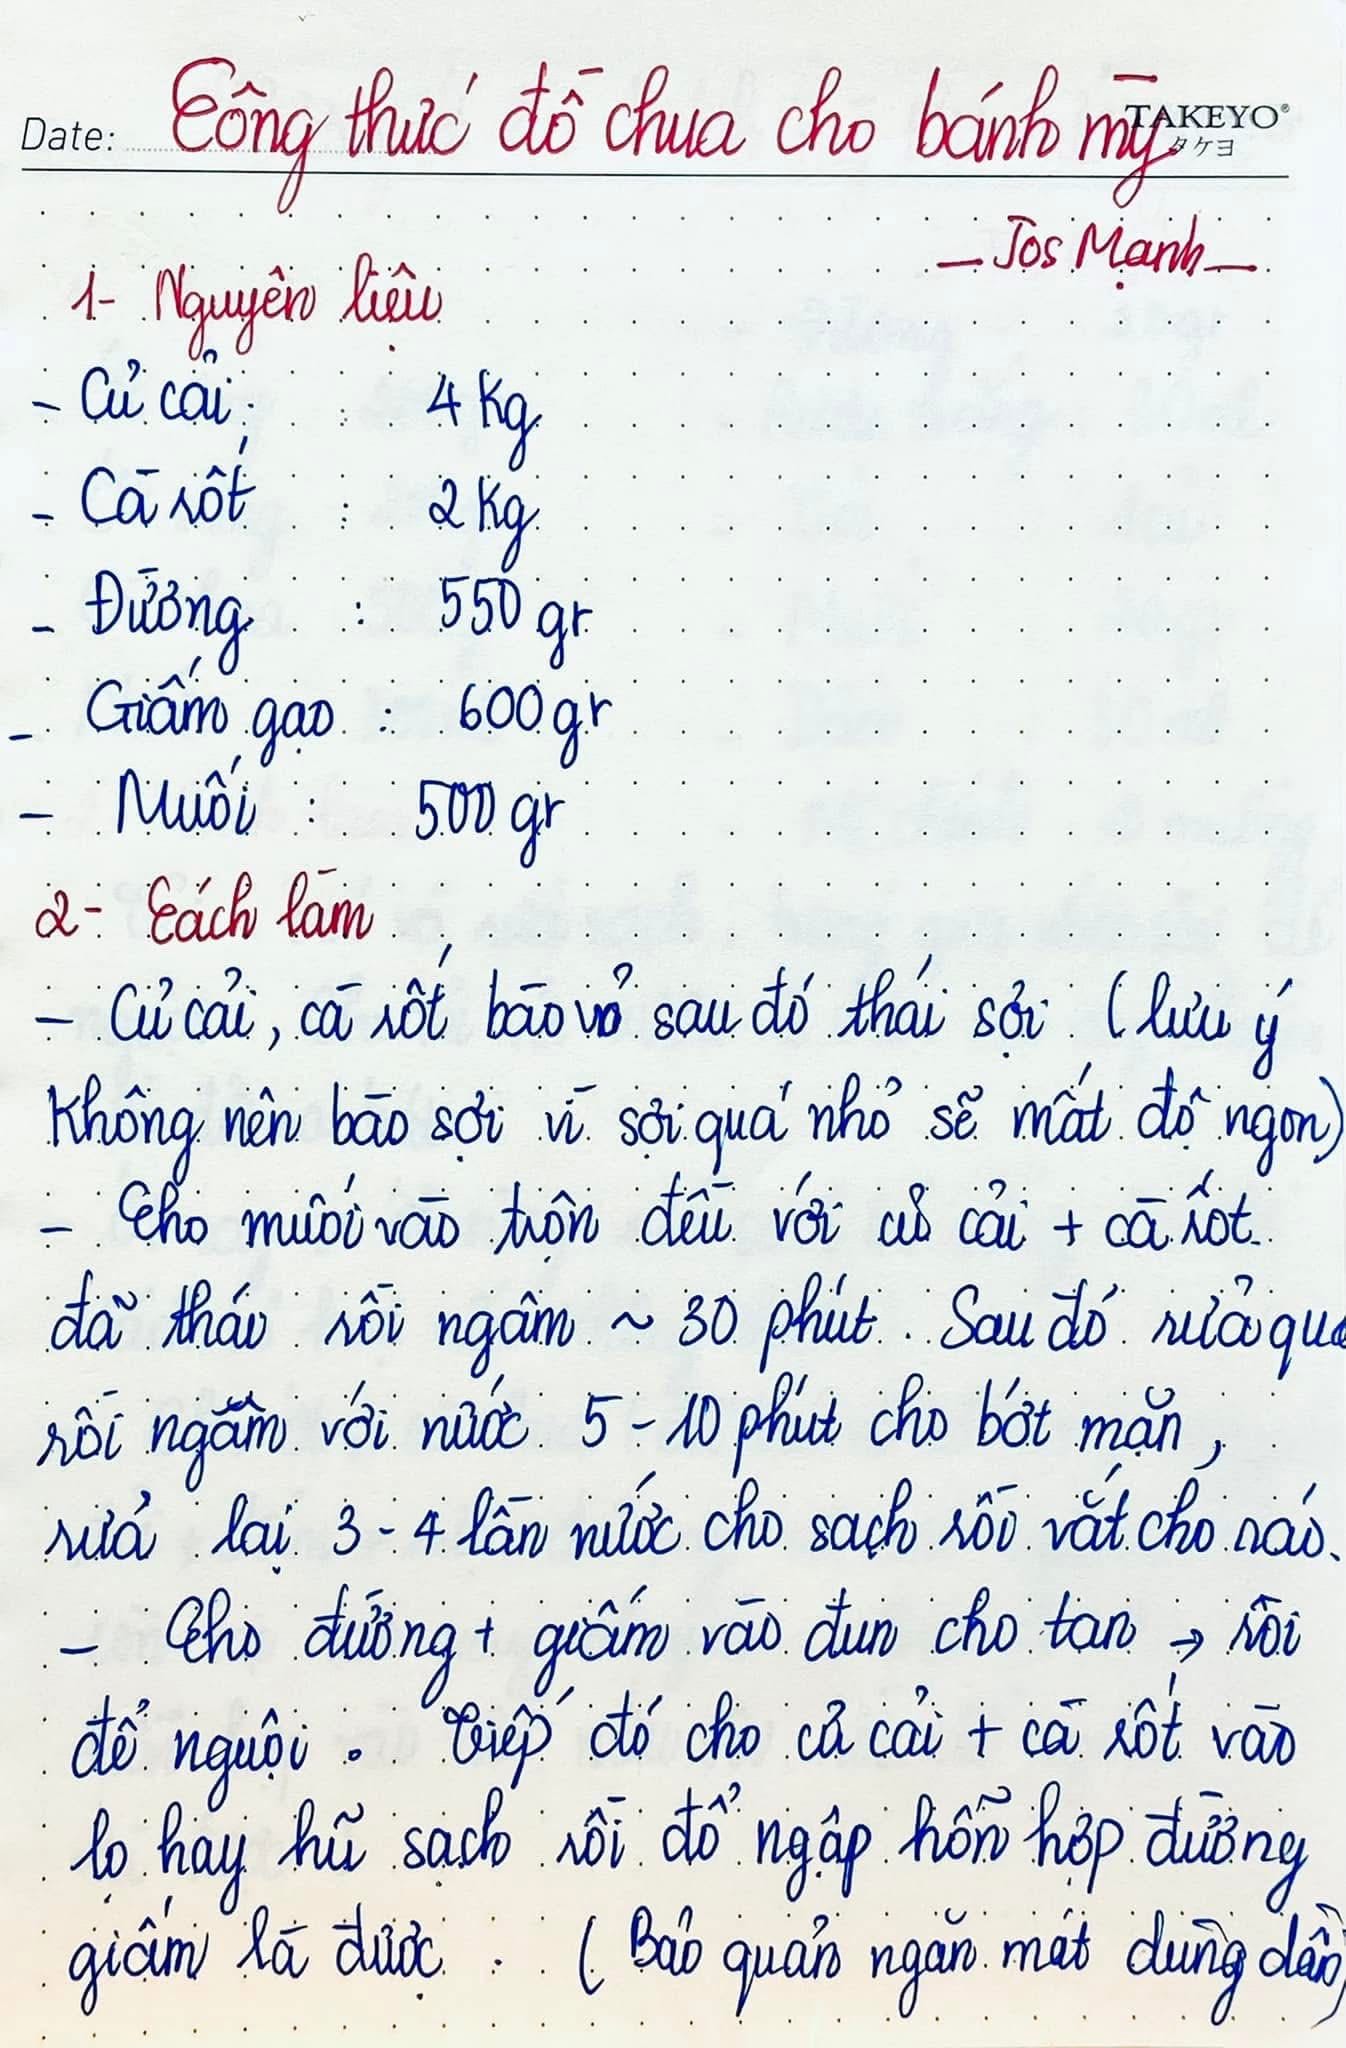 Date: Công thức đồ chua cho bánh mỳ TAKEYO®
タケヨ
- Jos Mạnh -
1- Nguyên liệu
- Củ cải : 4 Kg
- Cà rốt : 2 Kg
- Đường : 550 gr
- Giấm gạo : 600 gr
- Muối : 500 gr
2- Cách làm
- Củ cải, cà rốt bào vỏ sau đó thái sợi (lưu ý
không nên bào sợi vì sợi quá nhỏ sẽ mất độ ngon)
- Cho muối vào trộn đều với củ cải + cà rốt
đã thái rồi ngâm ~ 30 phút. Sau đó rửa qua
rồi ngâm với nước 5 - 10 phút cho bớt mặn,
rửa lại 3 - 4 lần nước cho sạch rồi vắt cho ráo.
- Cho đường + giấm vào đun cho tan → rồi
để nguội. Tiếp đó cho củ cải + cà rốt vào
lọ hay hũ sạch rồi đổ ngập hỗn hợp đường
giấm là được. (Bảo quản ngăn mát dùng dần)